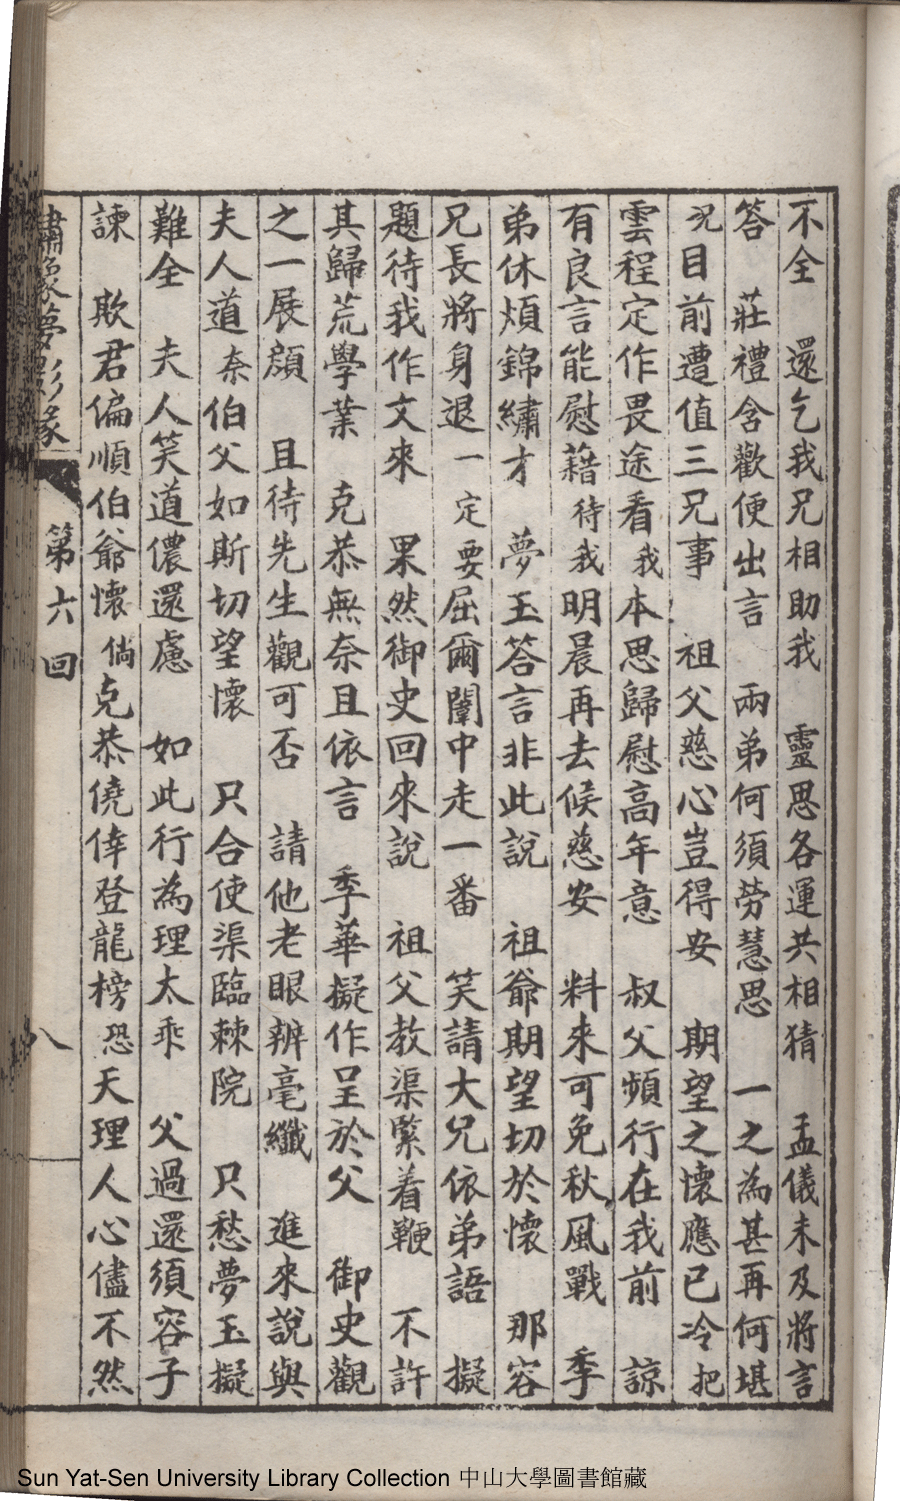 不全　還乞我兄相助我　靈思各運共相猜　孟儀未及將言
答　莊禮含歡便出言　兩弟何須勞慧思　一之為甚再何堪
況目前遭值三兄事　祖父慈心豈得安　期望之懷應已冷把
雲程定作畏途看我本思歸慰高年意　叔父頻行在我前　諒
有良言能慰藉待我明晨再去候慈安　料来可免秋風戰　季
弟休煩錦繡才　夢玉答言非此說　祖爺期望切於懷　那容
兄長將身退一定要屈爾闈中走一番　笑請大兄依弟語　擬
題待我作文來　果然御史回來說　祖父教渠緊着鞭　不許
其歸荒學業　克恭無奈且依言　季華擬作呈於父　御史觀
之一展顔　且待先生觀可否　請他老眼辨毫纖　進來說與
夫人道奈伯父如斯切望懷　只合使渠臨棘院　只愁夢玉擬
難全　夫人笑道儂還慮　如此行為理太乖　父過還須容子
諫　欺君偏順伯爺懷倘克恭僥倖登龍榜恐天理人心儘不然
繡像夢影緣　第六回　八
Sun Yat-Sen University Library Collection 中山大學圖書館藏